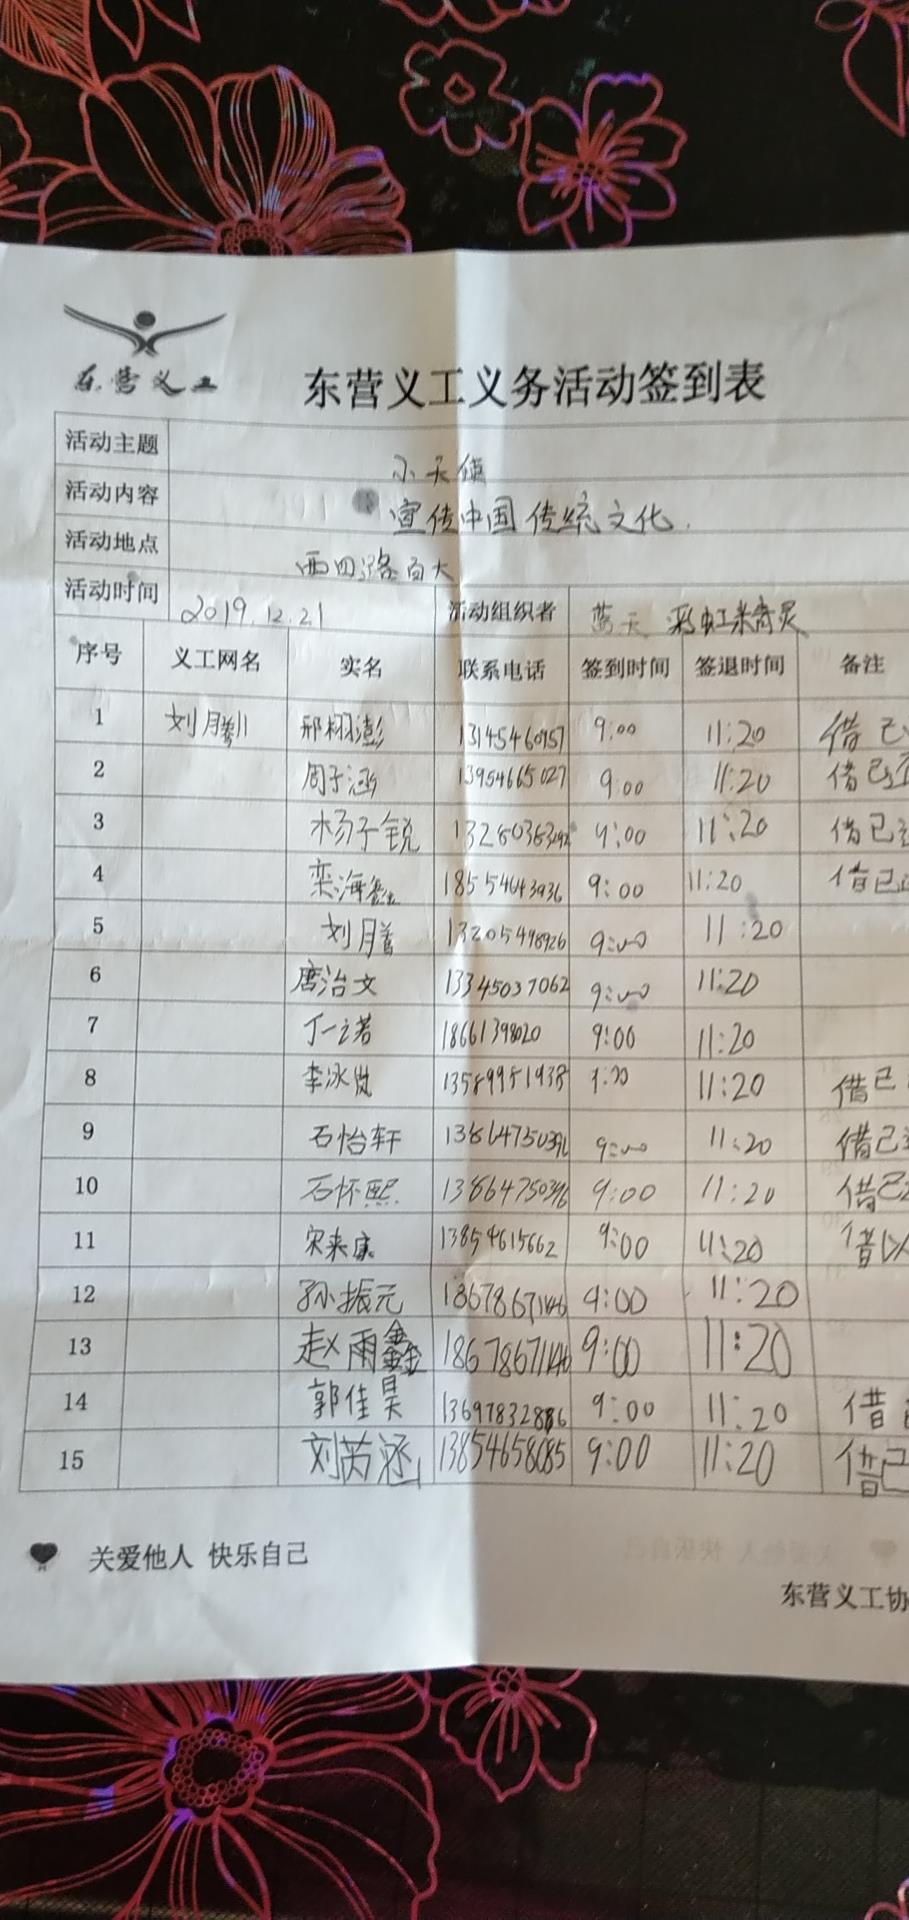 东营义工
东营义工义务活动签到表
活动主题 小天使
活动内容 宣传中国传统文化.
活动地点 西四路百大
活动时间 2019.12.21 活动组织者 蓝天 彩虹精灵
序号 义工网名 实名 联系电话 签到时间 签退时间 备注
1 邢栩澎 13145460957 9:00 11:20 借已
2 周子涵 13954665027 9:00 11:20 借已
3 杨子锐 9:00 11:20 借已
4 栾海鑫 18554643936 9:00 11:20 借已
5 刘腾 13205498926 9:00 11:20
6 唐治文 13345037062 9:00 11:20
7 丁一诺 18661398020 9:00 11:20
8 李泳贤 13589951938 11:20 借已
9 石怡轩 13864750396 9:00 11:20 借已
10 石怀熙 13864750396 9:00 11:20 借已
11 宋来康 13854615662 9:00 11:20 借
12 孙振元 18678671146 9:00 11:20
13 赵雨鑫 18678671146 9:00 11:20
14 郭佳昊 13697832886 9:00 11:20 借已
15 刘芮涵 13854658085 9:00 11:20 借已
关爱他人 快乐自己
东营义工协